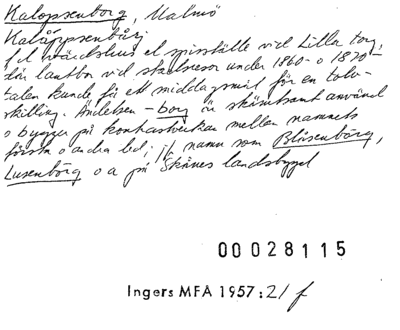 Kalopsenborg, Malmö
Kalåppsenbårj
f d värdshus el spisställe vid Lilla torg,
där lantbor vid stadsresor under 1860- o 1870-
talen kunde få ett middagsmål för en tolv-
skilling. Ändelsen -borg är skämtsamt använd
o bygger på kontrastverkan mellan namnets
första o andra led; jf namn som Blåsenborg,
Lusenborg o a på Skånes landsbygd
00028115
Ingers MFA 1957:21 f